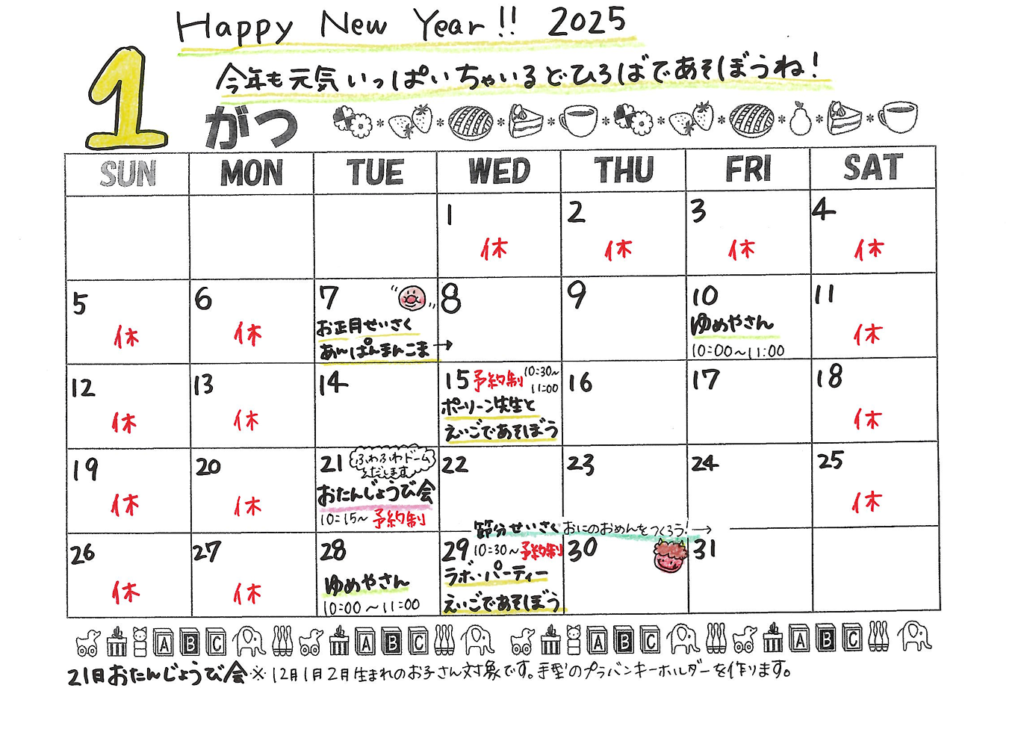 Happy New Year!! 2025
今年も元気いっぱいちゃいるどひろばであそぼうね!
1
がつ
SUN MON TUE WED THU FRI SAT
1 2 3 4
休 休 休 休
5 6 7 8 9 10 11
休 休
お正月せいさく
あんぱんまんこま→
ゆめやさん
10:00〜11:00
休
12 13 14 15 16 17 18
休 休
予約制 10:30〜
11:00
ポーリーン先生と
えいごであそぼう
休
19 20 21 22 23 24 25
休 休
ふわふわドーム
もだします
おたんじょうび会
10:15〜 予約制
休
節分せいさく おにのおめんをつくろう! →
26 27 28 29 30 31
休 休
ゆめやさん
10:00〜11:00
10:30〜予約制
ラボ・パーティー
えいごであそぼう
A B C A B C A B C A B C
21日おたんじょうび会※12月1月2月生まれのお子さん対象です。手型のプラバンキーホルダーを作ります。